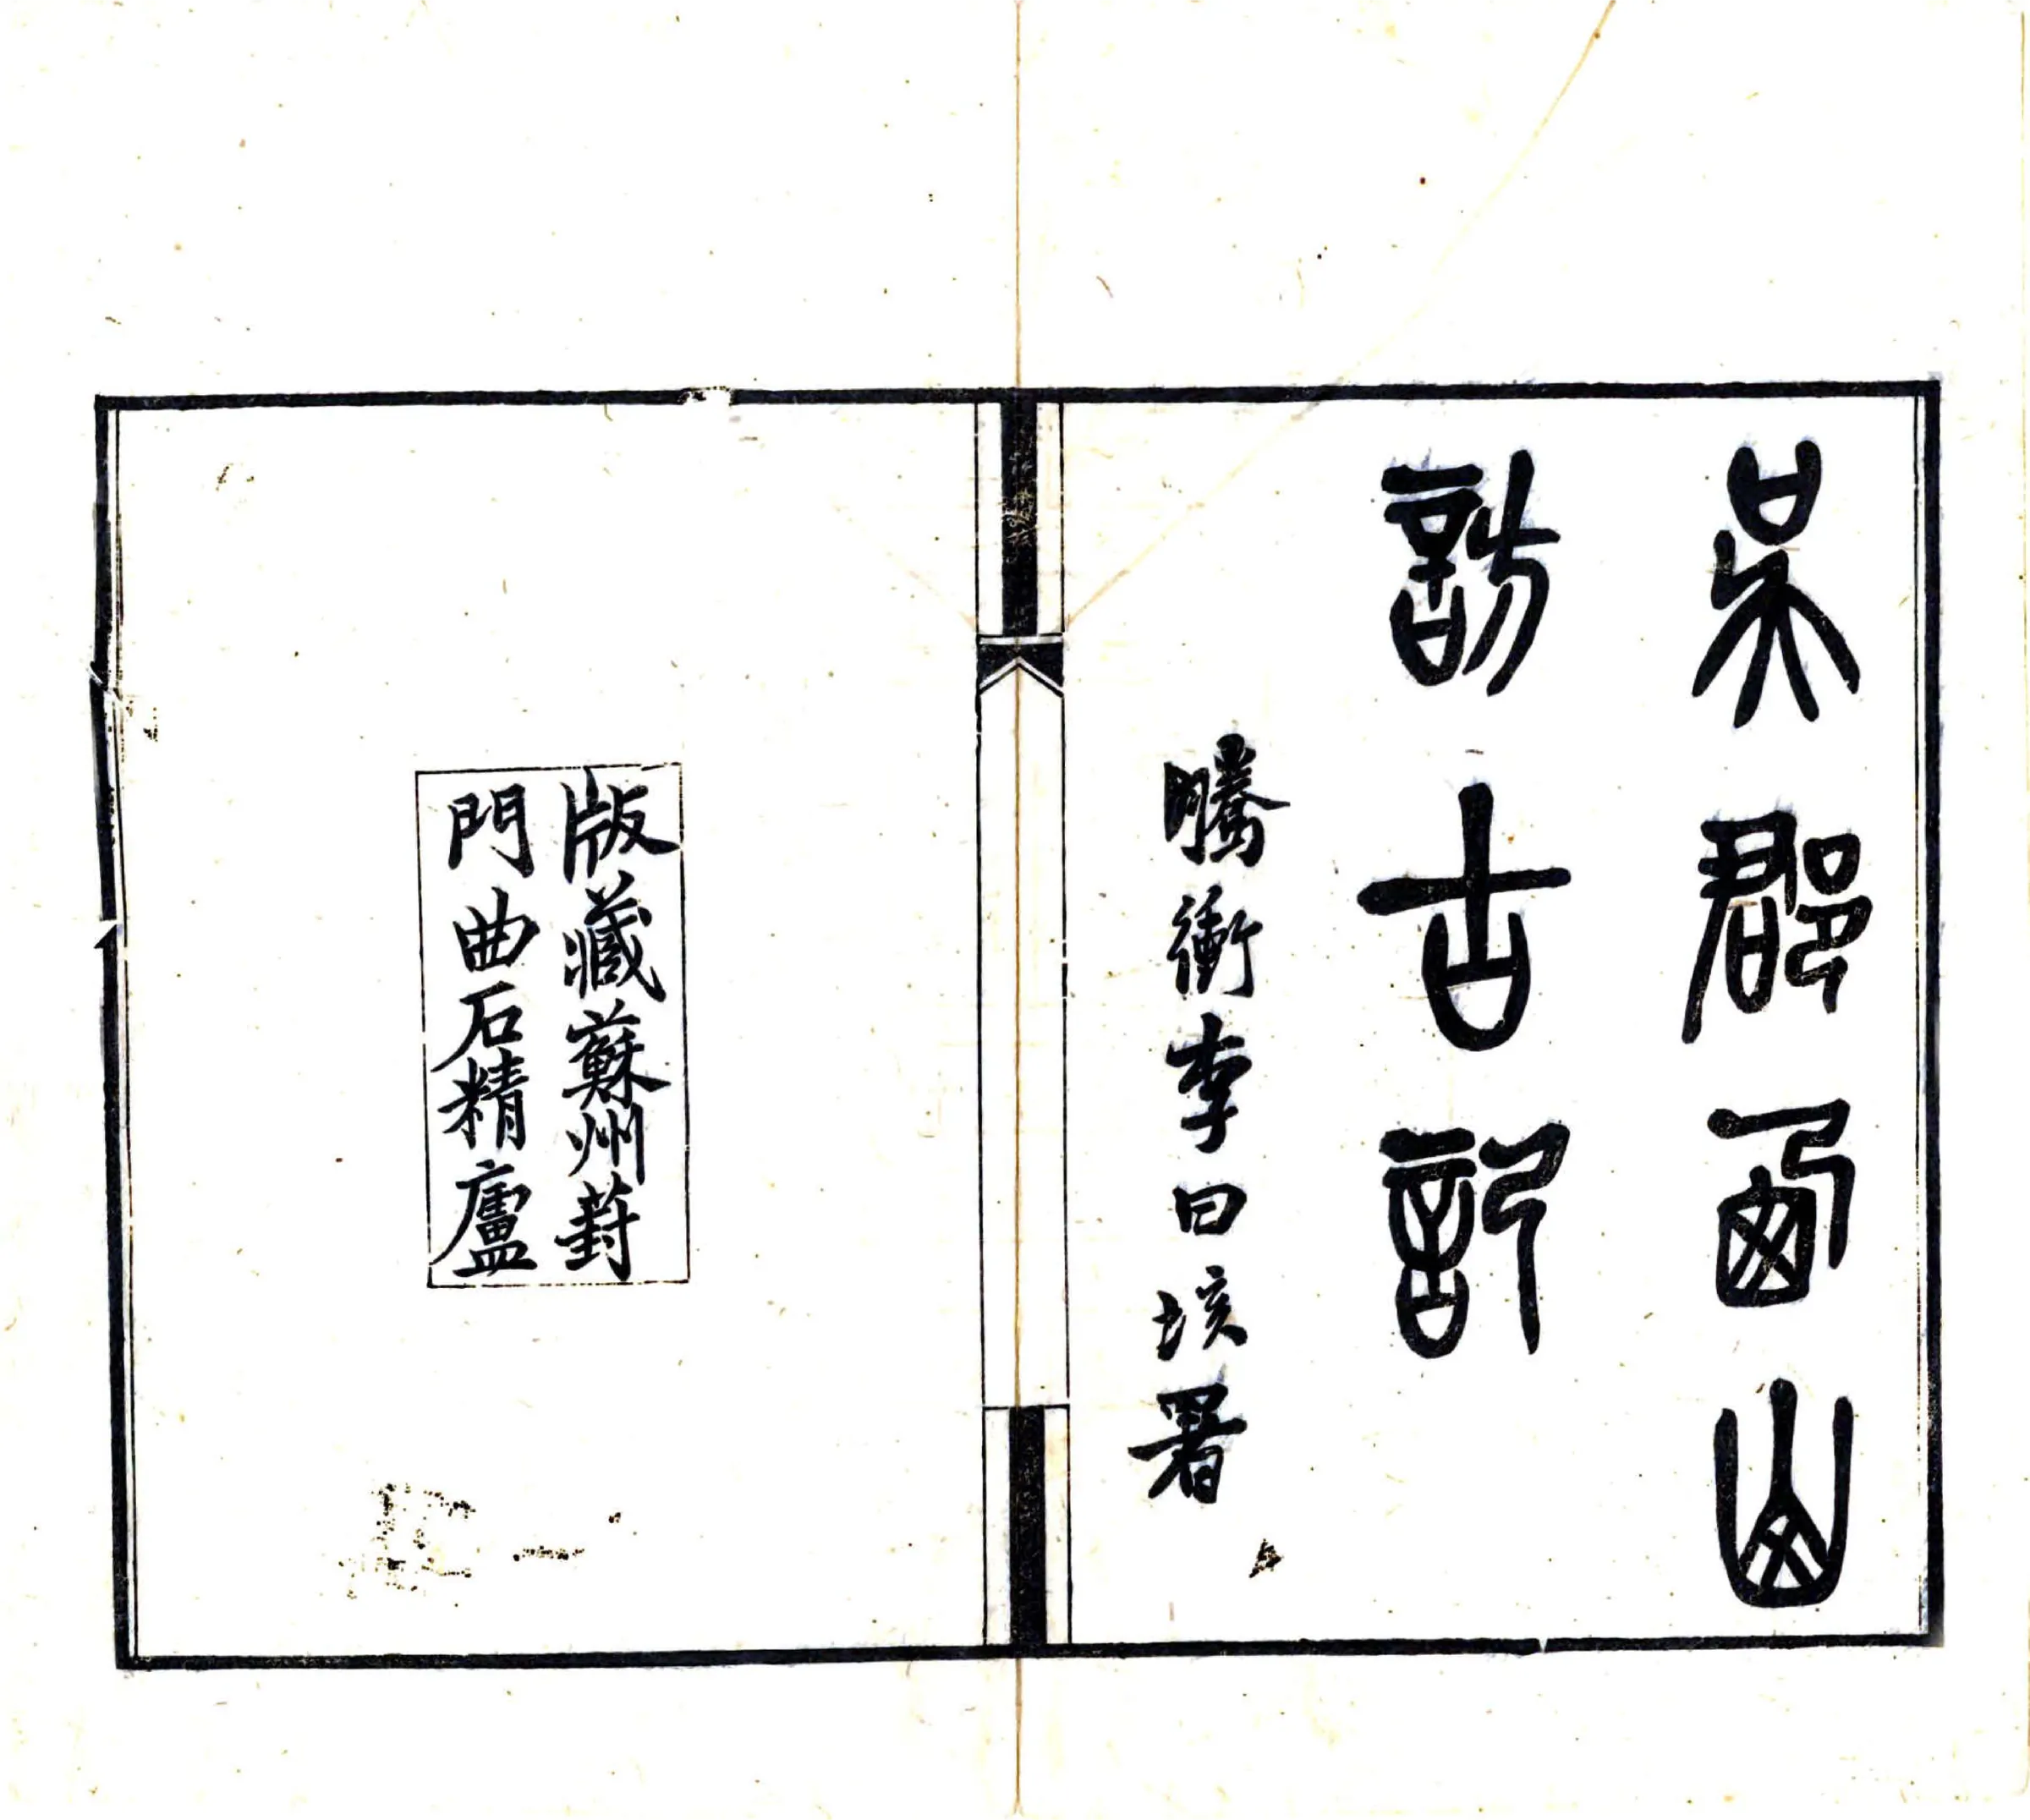 吳郡西山
訪古記
騰衝李曰垓署
版藏蘇州葑
門曲石精廬